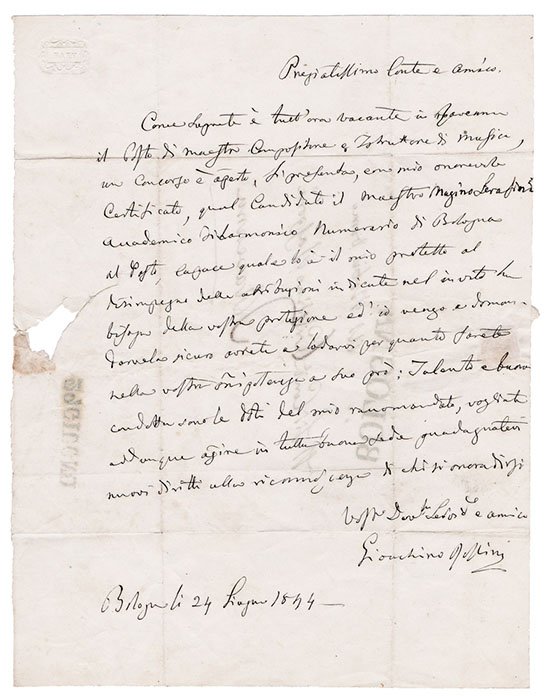 Pregiatissimo Conte e Amico.
Come saprete è tutt'ora vacante in Ravenna
il Posto di maestro Compositore e Istruttore di Musica,
un Concorso è aperto, si presenta, con mio onorevole
Certificato, qual Candidato il Maestro Magino Serafini
Accademico Filarmonico Numerario di Bologna
al Posto, Capace qual è il mio protetto al
disimpegno delle attribuzioni indicate nel invito ha
bisogno della vostra protezione ed io vengo a doman-
darvela sicuro avrete a lodarvi per quanto farete
nella vostra onnipotenza a suo prò; Talento e buona
condotta sono le Doti del mio racomandato, vogliate
addunque agire in tutta buona fede guadagnatevi
nuovi diritti alla riconoscenza di chi si onora dirsi
Vostro Devmo Servid e e amico
Gioachino Rossini
Bologna li 24 Giugno 1844
BOLOGNA
GIUGNO